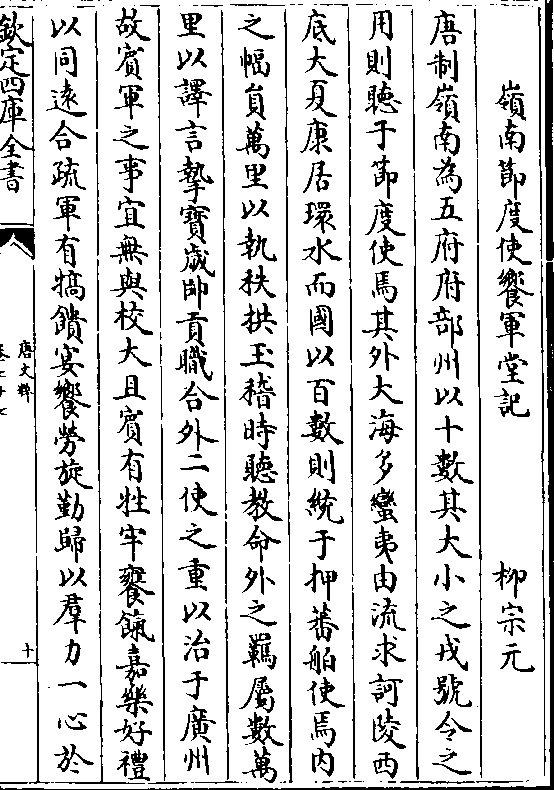 嶺南節度使饗軍堂記　柳宗元
唐制嶺南為五府府部州以十數其大小之戎號令之
用則聽于節度使焉其外大海多蠻夷由流求訶陵西
底大夏康居環水而國以百數則統于押蕃舶使焉内
之幅員萬里以執秩拱玉稽時聽教命外之羈屬數萬
里以譯言摯寳歲帥貢職合外二使之重以治于廣州
故賓軍之事宜無與校大且賓有牲牢饔餼嘉樂好禮
以同遠合疏軍有犒饋宴饗勞旋勤歸以羣力一心於
欽定四庫全書
唐文粹
十